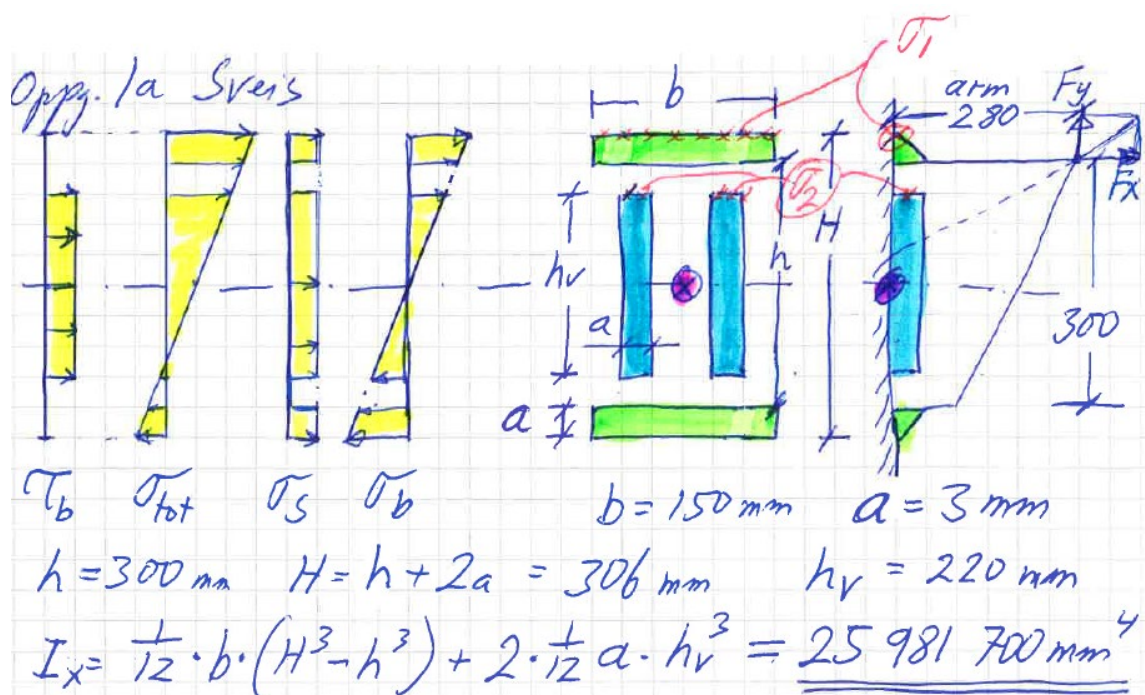 Oppg. 1a Sveis
σ1
b
arm
280
Fy
Fx
σ2
H
h
hv
a
300
a
τb σtot σs σb
b = 150 mm a = 3 mm
h = 300 mm H = h + 2a = 306 mm hv = 220 mm
Ix = 1/12 · b · (H³ - h³) + 2 · 1/12 a · hv³ = 25 981 700 mm⁴